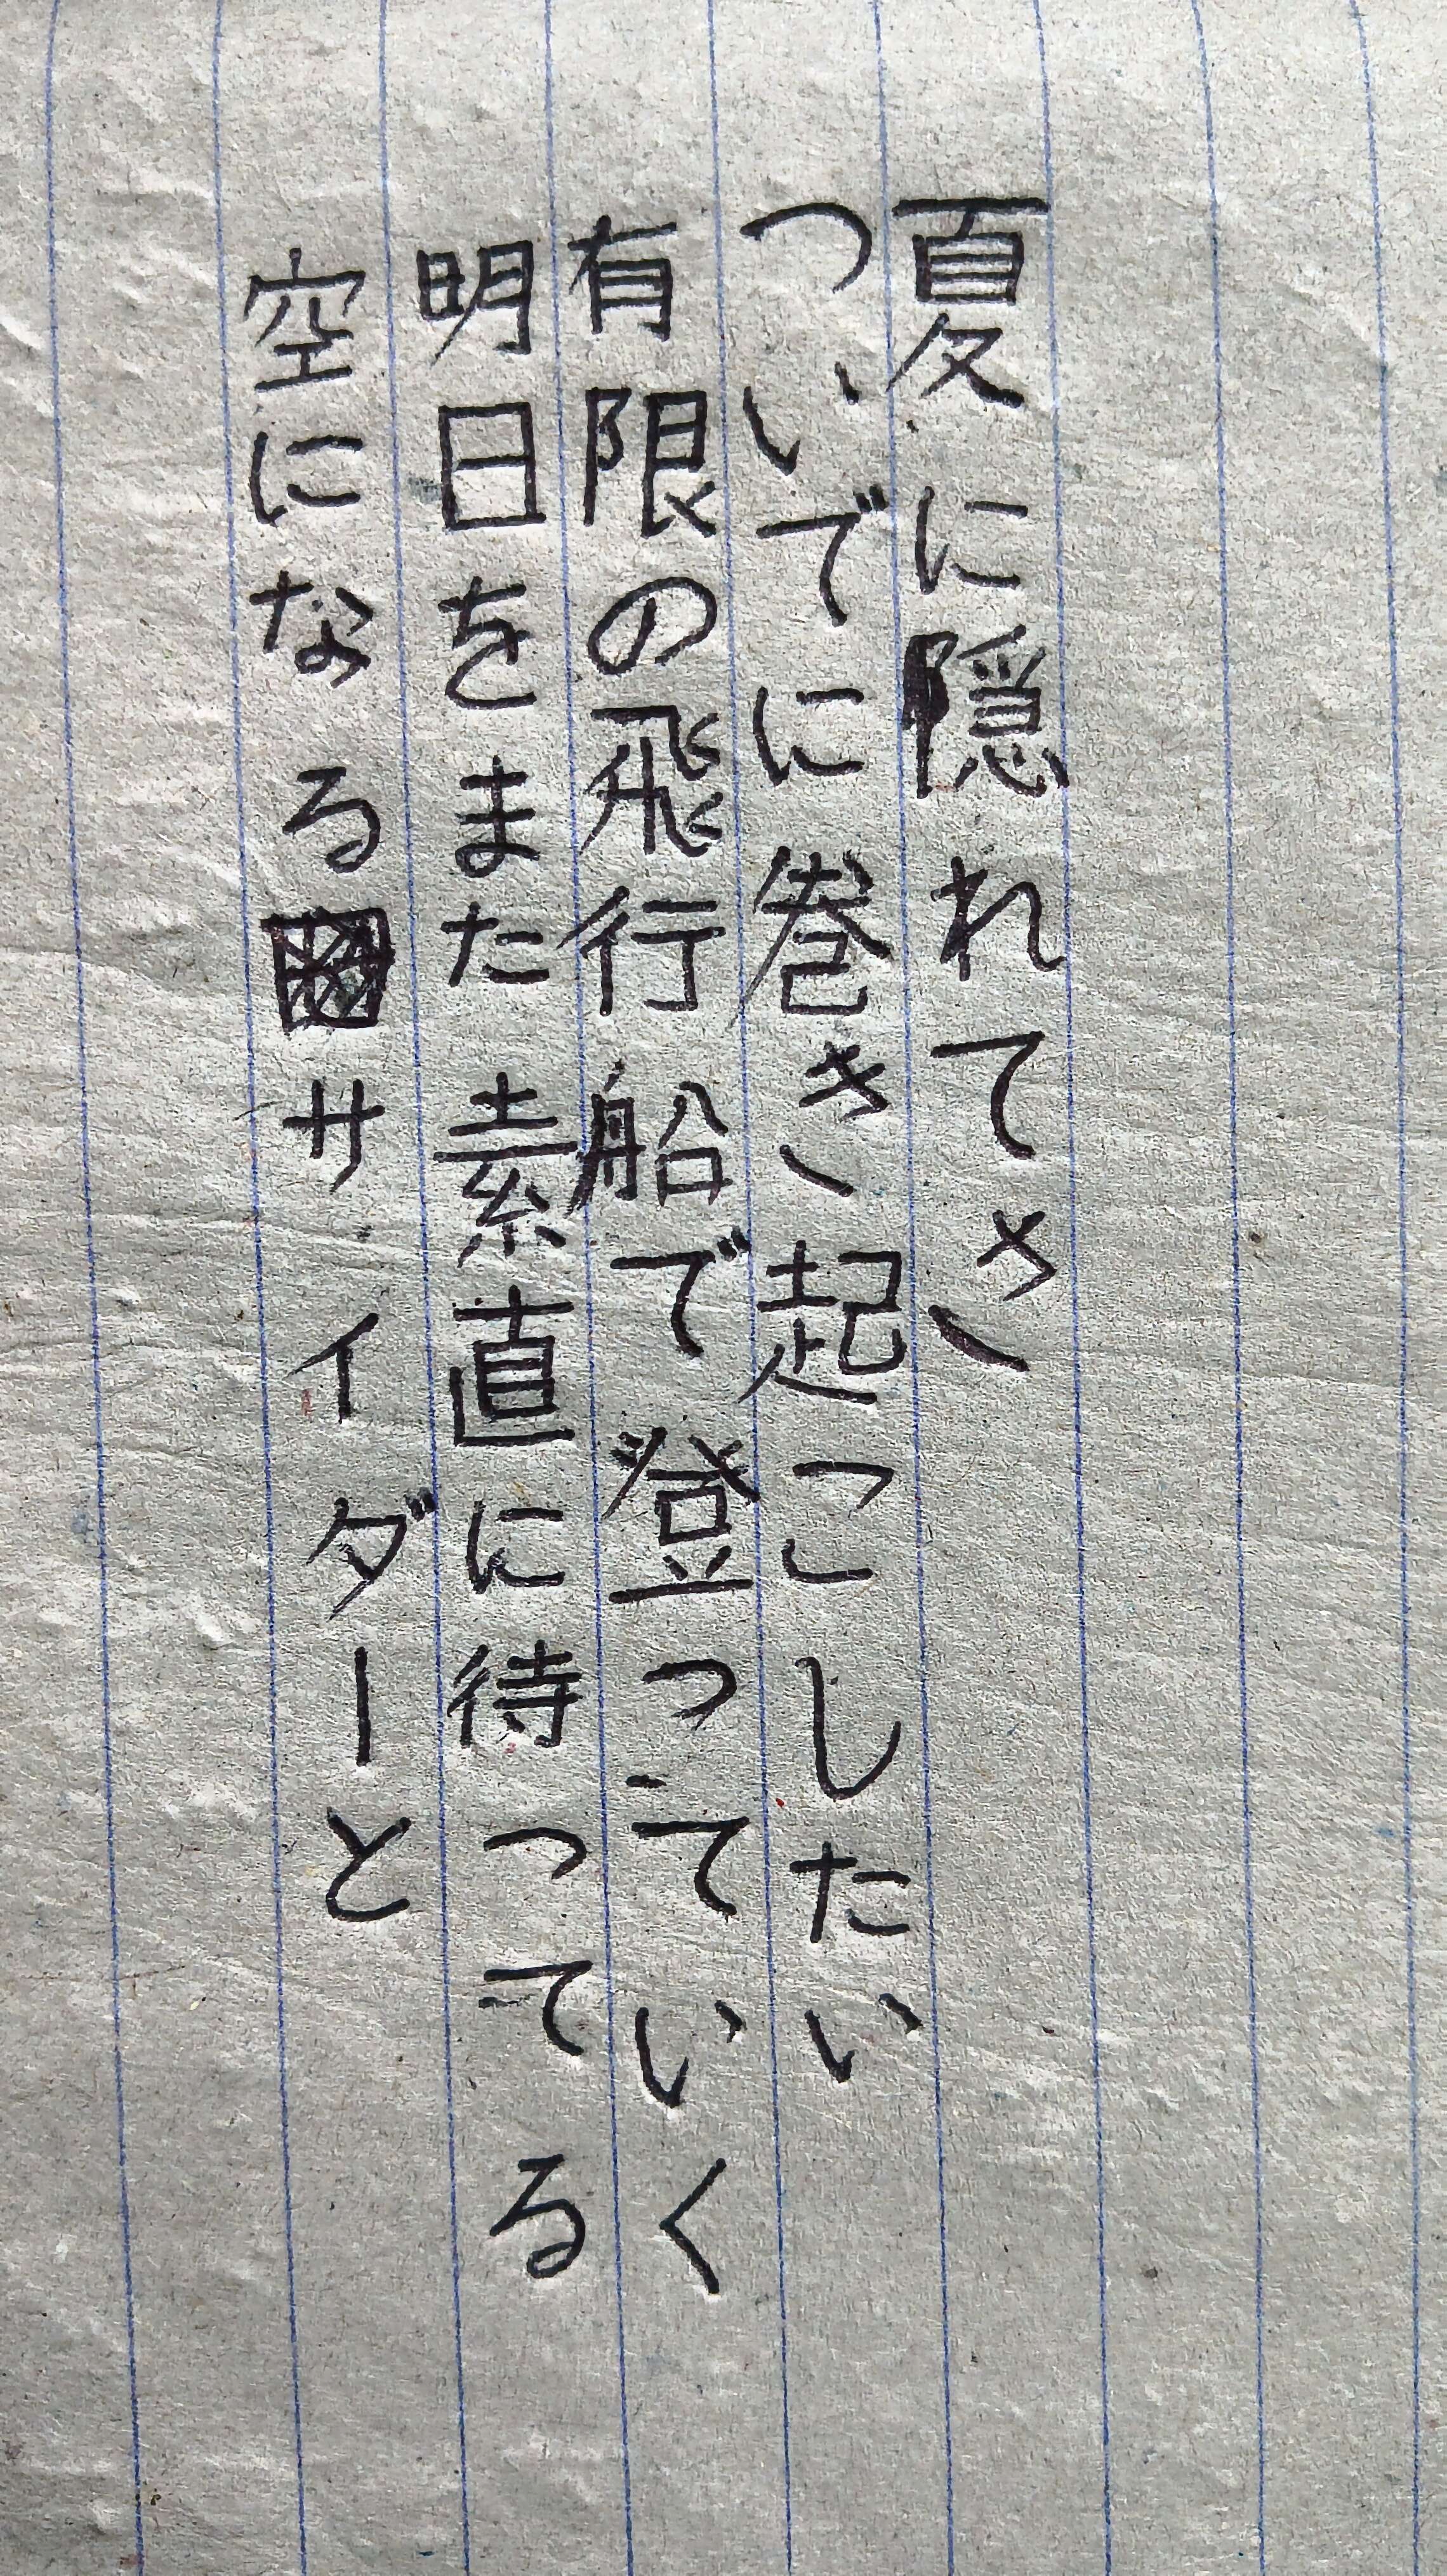 夏に隠れてき
ついでに巻き起こしたい
有限の飛行船で登っていく
明日をまた素直に待ってる
空になるサイダーと